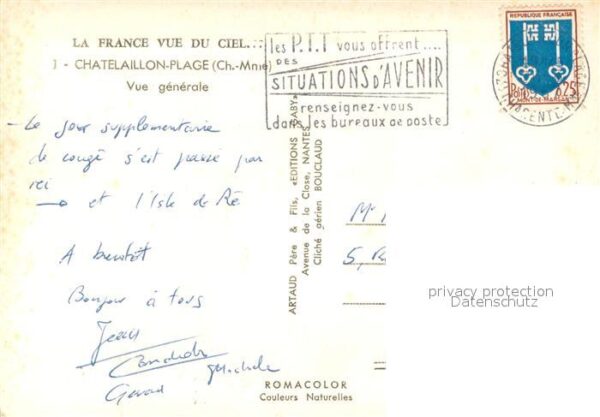 LA FRANCE VUE DU CIEL...
1 - CHATELAILLON-PLAGE (Ch.-Mme)
Vue générale
les P.T.T vous offrent....
DES
SITUATIONS D'AVENIR
renseignez-vous
dans les bureaux de poste
REPUBLIQUE FRANÇAISE
Postes 0,25
MONT-DE-MARSAN
Le jour supplementaire
de congé s'est passé par
ici
→ et l'Isle de Ré
A bientôt
Bonjour à tous
Jean
Michele
Gerard
ARTAUD Père & Fils, «EDITIONS GABY»
Avenue de la Close, NANTES
Cliché aérien BOUCLAUD
Mr
5, R
privacy protection
Datenschutz
ROMACOLOR
Couleurs Naturelles